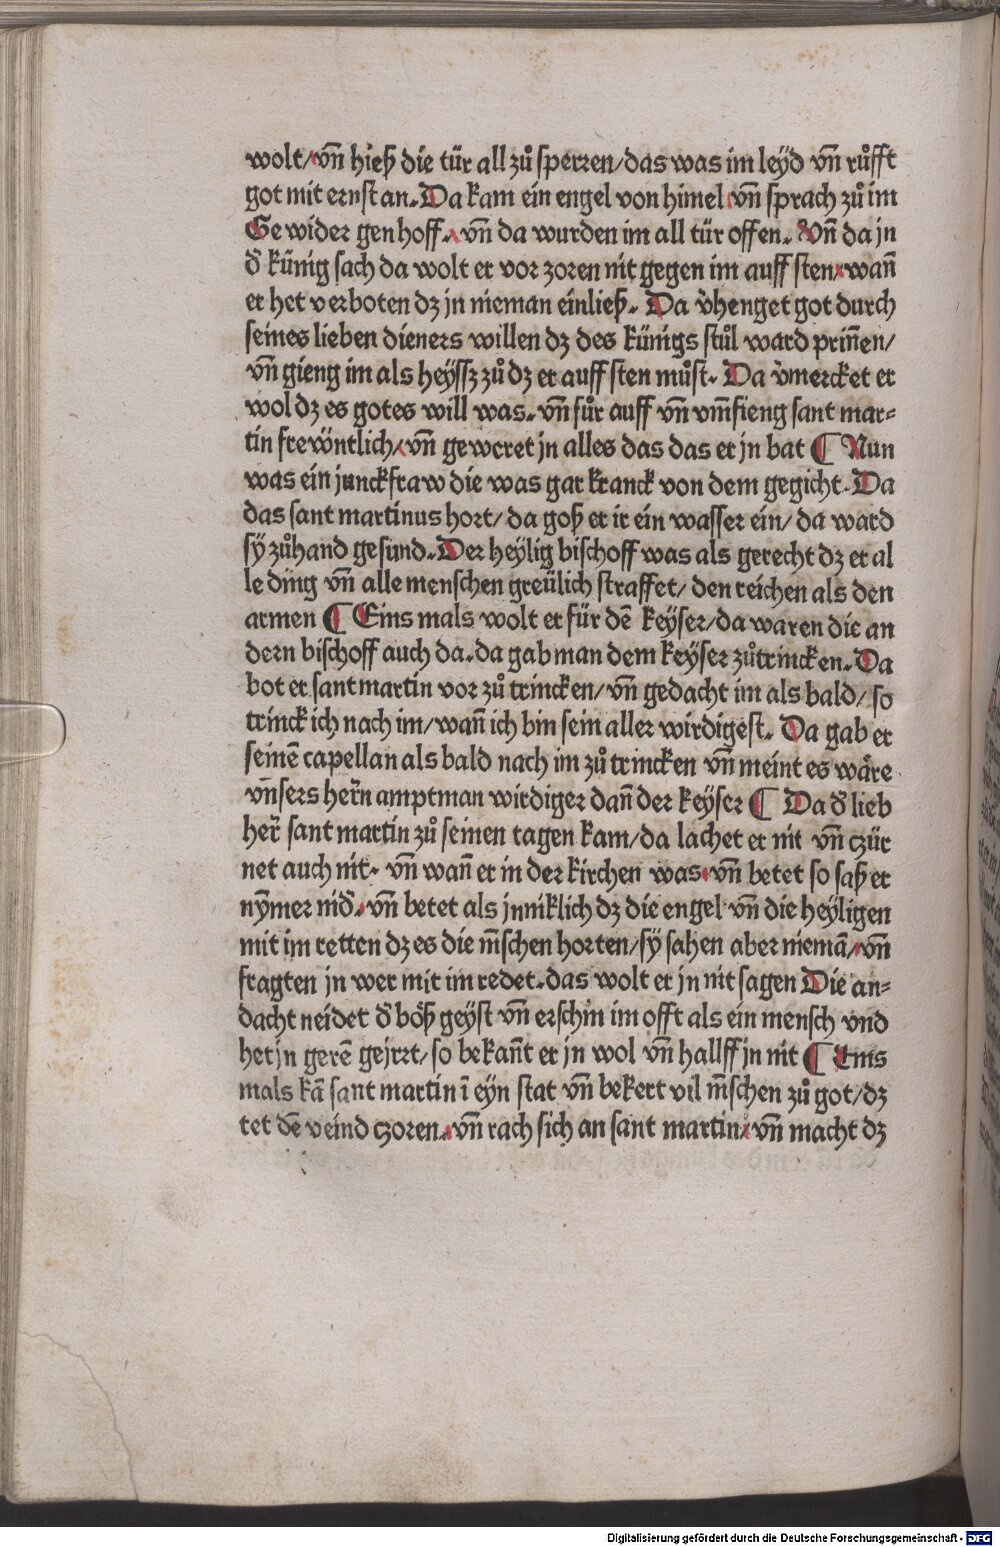 wolt/vñ hieß die tür all zů sperren/das was im leÿd vñ růfft
got mit ernst an. Da kam ein engel von himel vñ sprach zů im
Ge wider gen hoff. vñ da wurden im all tür offen. Vñ da jn
d̄ künig sach da wolt er vor zoren nit gegen im auff sten wañ
er het verboten dz jn nieman einließ. Da v̉henget got durch
seines lieben dieners willen dz des künigs stůl ward priñen/
vñ gieng im als heÿssz zů dz er auff sten můst. Da v̉mercket er
wol dz es gotes will was. vñ fůr auff vñ vm̄fieng sant mar-
tin frewöntlich/vñ geweret jn alles das das er jn bat ¶ Nun
was ein junckfraw die was gar kranck von dem gegicht. Da
das sant martinus hort/da goß er ir ein wasser ein/da ward
sÿ zůhand gesund. Der heÿlig bischoff was als gerecht dz er al
le ding vñ alle menschen greülich straffet/den reichen als den
armen ¶ Eins mals wolt er für dē keÿser/da waren die an
dern bischoff auch da. da gab man dem keÿser zůtrincken. Da
bot er sant martin vor zů trincken/vñ gedacht im als bald/so
trinck ich nach im/wañ ich bin sein aller wirdigest. Da gab er
seinē capellan als bald nach im zů trincken vñ meint es wåre
vñsers her̃n amptman wirdiger dañ der keÿser ¶ Da d̄ lieb
her̃ sant martin zů seinen tagen kam/da lachet er nit vñ czür
net auch nit. vñ wañ er in der kirchen was vñ betet so saß er
nÿmer nid̄. vñ betet als jnniklich dz die engel vñ die heÿligen
mit im retten dz es die m̄schen horten/sÿ sahen aber niemā/vñ
fragten jn wer mit im redet. das wolt er jn nit sagen Die an-
dacht neidet d̄ böß geÿst vñ erschin im offt als ein mensch vnd
het jn gerē gejrrt/so bekañt er jn wol vñ hallff jn nit ¶ Eins
mals kā sant martin ī eÿn stat vñ bekert vil m̄schen zů got/dz
tet dē veind czoren. vñ rach sich an sant martin vñ macht dz
Digitalisierung gefördert durch die Deutsche Forschungsgemeinschaft - DFG